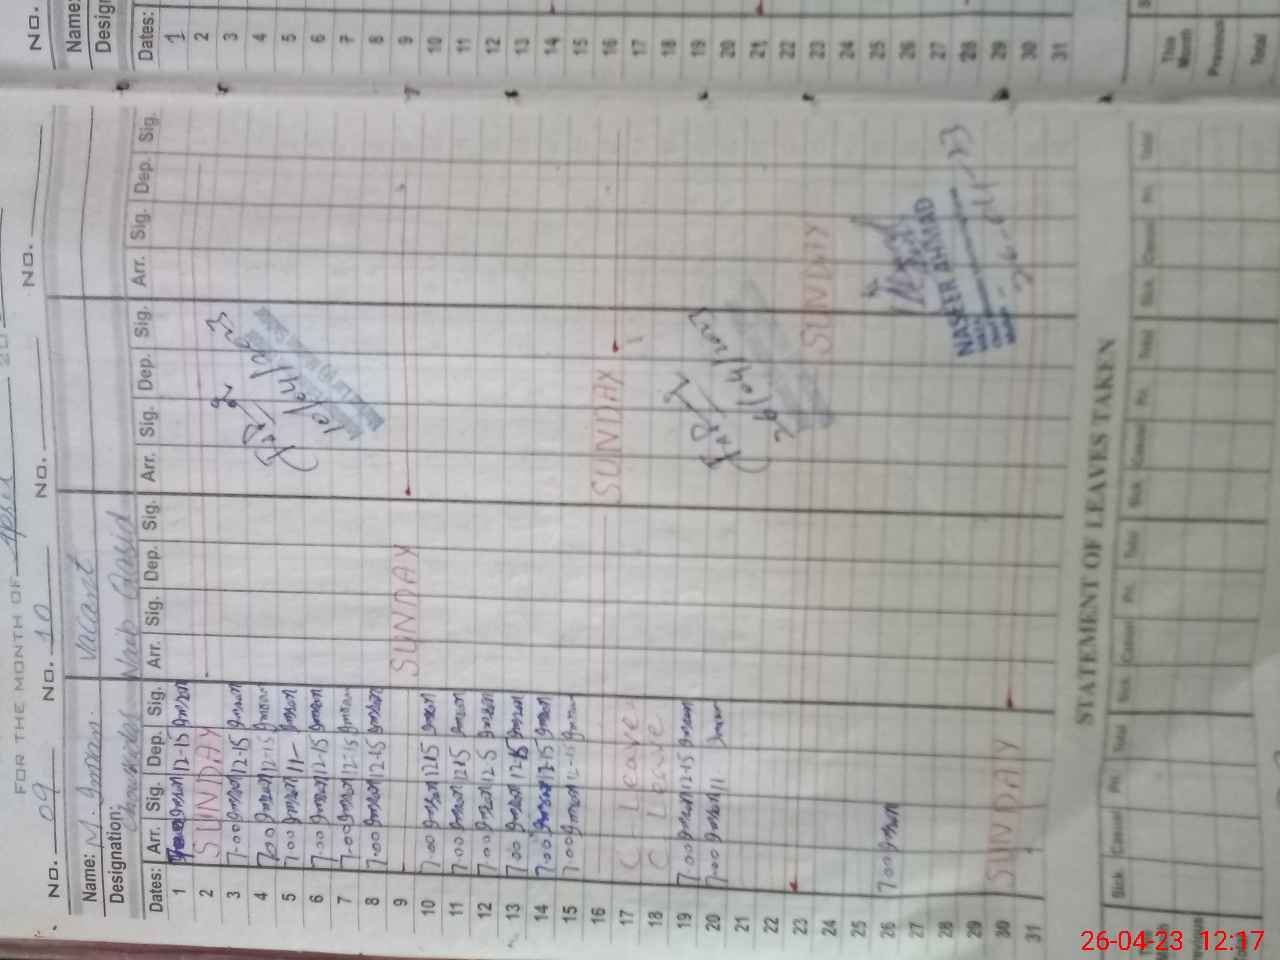 FOR THE MONTH OF April 20
No. 09 No. 10 No. No.
Name: M. Imran. Vacant
Designation: Chowkidar Naib Qasid
Dates: Arr. Sig. Dep. Sig. Arr. Sig. Dep. Sig. Arr. Sig. Dep. Sig. Arr. Sig. Dep. Sig.
1 7-00 Imran 12-15 Imran
2 SUNDAY
3 7-00 Imran 12-15 Imran
4 7-00 Imran 12-15 Imran
5 7-00 Imran 11- Imran
6 7-00 Imran 12-15 Imran
7 7-00 Imran 12-15 Imran
8 7-00 Imran 12-15 Imran
9 SUNDAY
10 7-00 Imran 12-15 Imran
11 7-00 Imran 12-15 Imran
12 7-00 Imran 12-5 Imran
13 7-00 Imran 12-15 Imran
14 7-00 Imran 12-15 Imran
15 7-00 Imran 12-15 Imran
16 SUNDAY
17 C Leave
18 C Leave
19 7-00 Imran 12-15 Imran
20 7-00 Imran 11. Imran
21
22
23 SUNDAY
24
25
26 7-00 Imran
27
28
29
30 SUNDAY
31
10/04/2023
26/04/2023
NASEER AHMAD
26-04-23
STATEMENT OF LEAVES TAKEN
Sick Casual Pri. Total Sick Casual Pri. Total Sick Casual Pri. Total Sick Casual Pri. Total
No.
Name:
Design
Dates:
1
2
3
4
5
6
7
8
9
10
11
12
13
14
15
16
17
18
19
20
21
22
23
24
25
26
27
28
29
30
31
This Month
Previous
Total
26-04-23 12:17